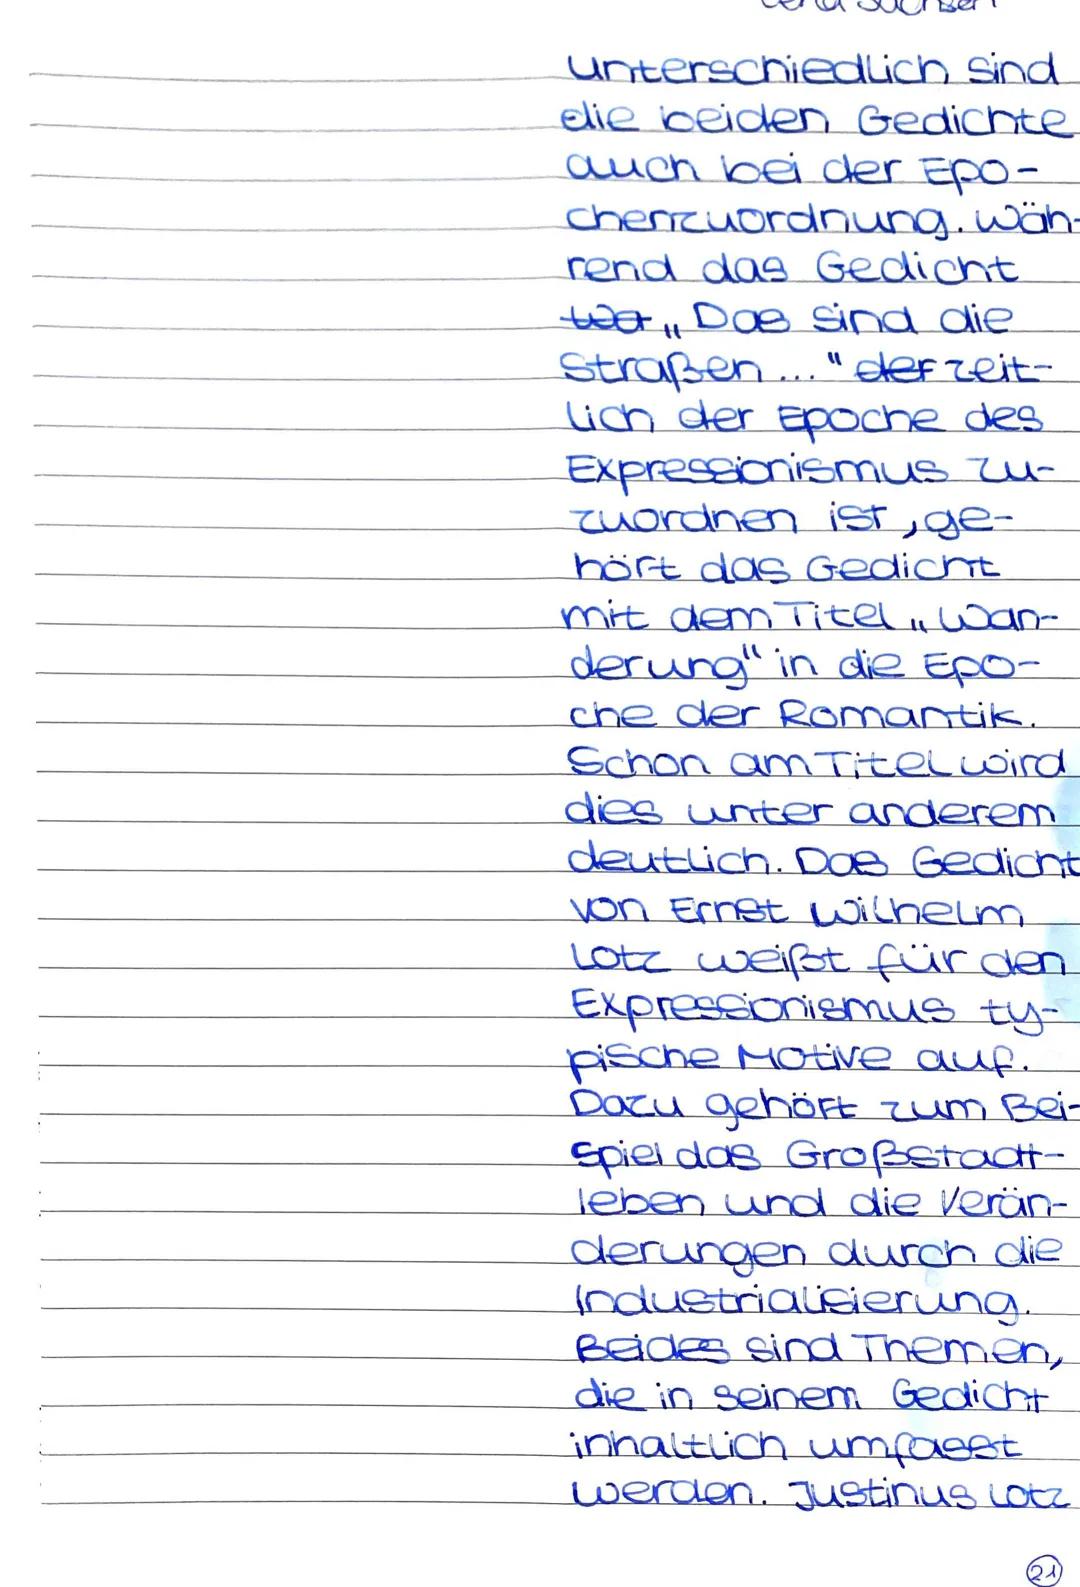 unterschiedlich sind
die beiden Gedichte
auch bei der Epo-
chenzuordnung. Wäh-
rend das Gedicht
„Das sind die
Straßen..." der zeit-
lich der Epoche des
Expressionismus zu-
zuordnen ist, ge-
hört das Gedicht
mit dem Titel „Wan-
derung" in die Epo-
che der Romantik.
Schon am Titel wird
dies unter anderem
deutlich. Das Gedicht
von Ernst Wilhelm
Lotz weißt für den
Expressionismus ty-
pische Motive auf.
Dazu gehört zum Bei-
spiel das Großstadt-
leben und die Verän-
derungen durch die
Industrialisierung.
Beides sind Themen,
die in seinem Gedicht
inhaltlich umfasst
werden. Justinus Lotz
21